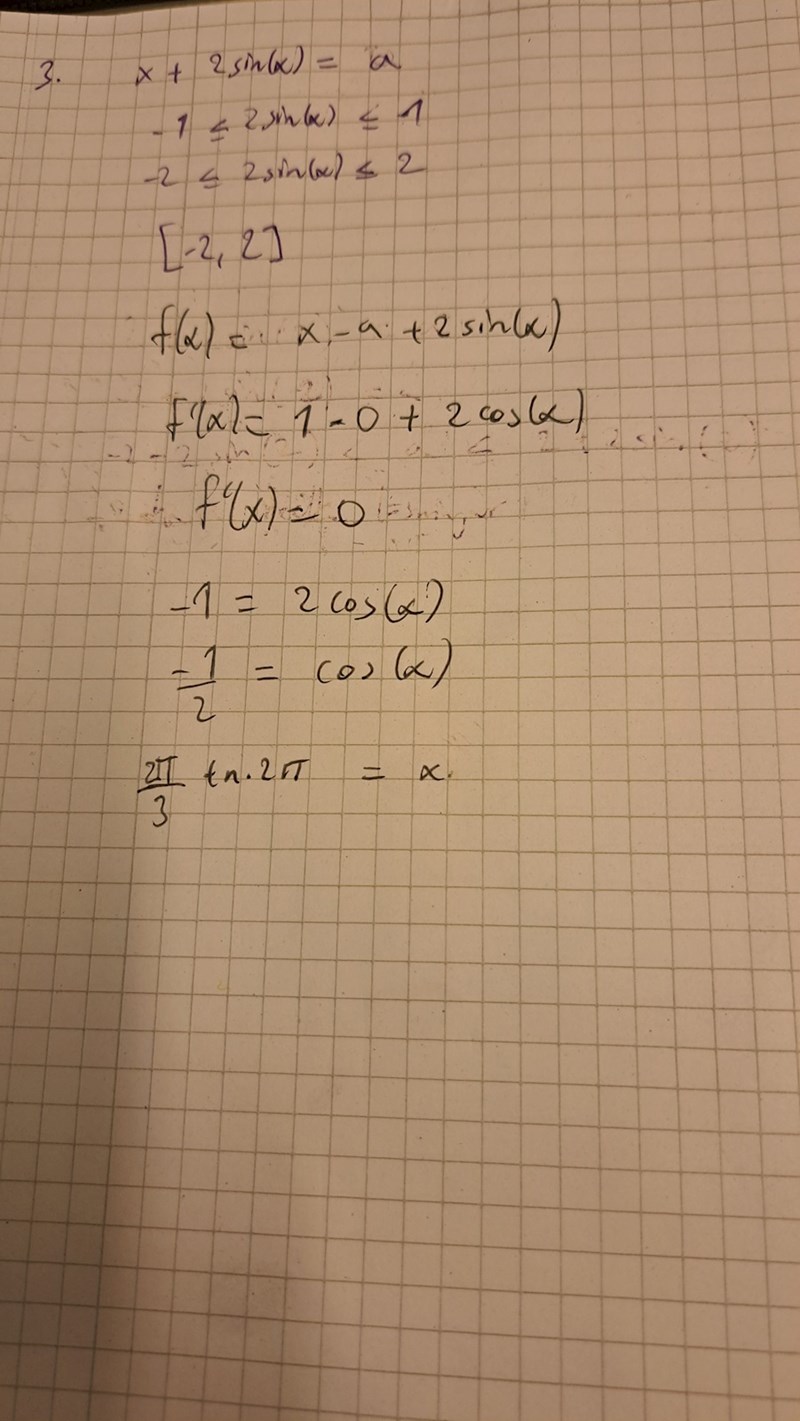 3. x + 2sin(x) = a
-1 ≤ 2sin(x) ≤ 1
-2 ≤ 2sin(x) ≤ 2
[-2, 2]
f(x) = x - a + 2 sin(x)
f'(x) = 1 - 0 + 2 cos(x)
f'(x) = 0
-1 = 2 cos(x)
-1/2 = cos(x)
2π/3 + n. 2π = x